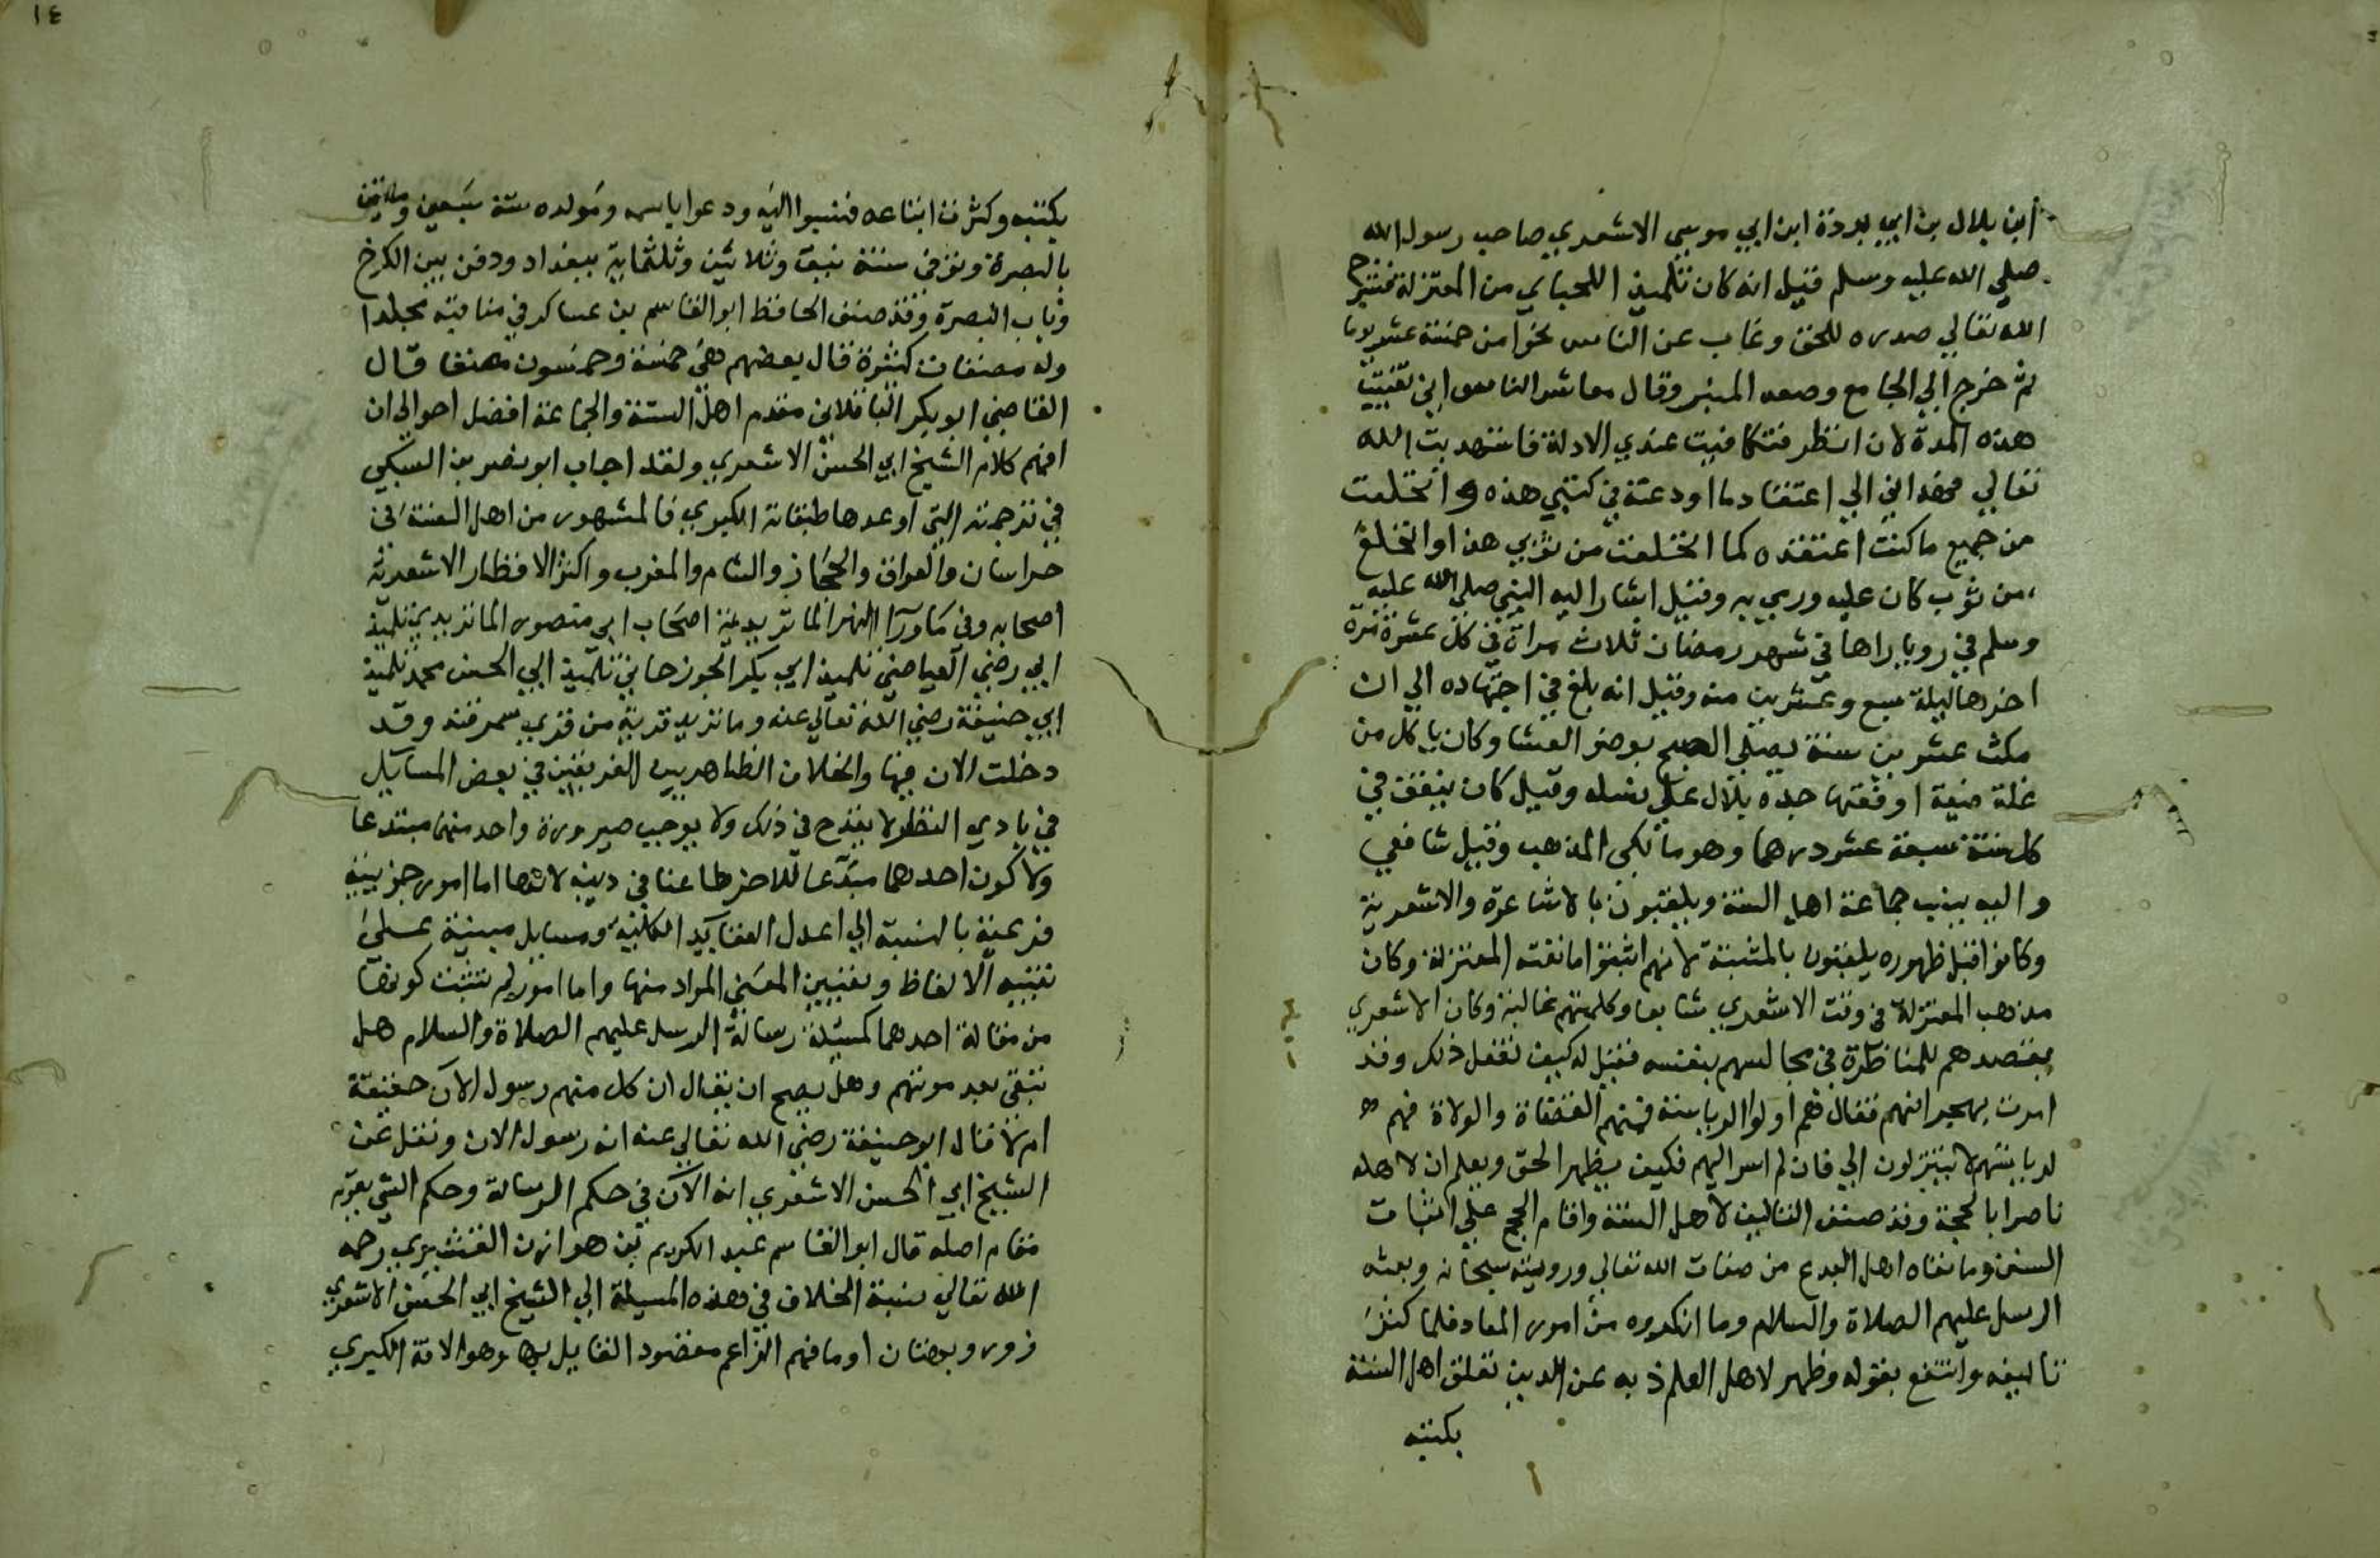 ابن بلال بن ابي بردة ابن ابي موسي الاشعري صاحب رسول الله
صلي الله عليه وسلم فقيل انه كان تلميذ اللجباي من المعتزلة فشرح
الله تعالي صدره للحق وغاب عن الناس نحوا من خمسة عشر يوما
ثم خرج الي الجامع وصعد المنبر وقال معاشر الناس اني تغيبت
هذه المدة لان انظر فتكافيت عندي الادلة فاستهديت الله
تعالي فهداني الي اعتقاد ما اودعته في كتبي هذه وانخلعت
من جميع ما كنت اعتقده كما انخلعت من ثوبي هذا وانخلع
من ثوب كان عليه ورمي به وقيل اشار اليه النبي صلي الله عليه
وسلم في رويا راها في شهر رمضان ثلاث مراة في كل عشرة مرة
اخرها ليلة سبع وعشرين منه وقيل انه بلغ في اجتهاده الي ان
مكث عشرين سنة يصلي الصبح بوضو العشا وكان ياكل من
غلة ضيعة اوقفتها جده بلال علي نسله وقيل كان ينفق في
كل سنة سبعة عشر درهما وهو مالكي المذهب وقيل شافعي
واليه ينسب جماعة اهل السنة ويلقبون بالاشاعرة والاشعرية
وكانوا قبل ظهوره يلقبون بالمثبتة لانهم اثبتوا ما نفته المعتزلة وكان
مذهب المعتزلة في وقت الاشعري شايعا وكلمتهم غالبة وكان الاشعري
يقصدهم للمناظرة في مجالسهم بنفسه فقيل له كيف تفعل ذلك وقد
امرت بهجرانهم فقال هم اولوا الرياسة فمنهم القضاة والولاة فهم
لرياستهم لا ينزلون الي فان لم اسر اليهم فكيف يظهر الحق ويعلم ان لاهله
ناصرا بالحجة وقد صنف التاليف لاهل السنة واقام الحجج علي اثبات
السنن وما نفاه اهل البدع من صفات الله تعالي ورويته سبحانه وبعثه
الرسل عليهم الصلاة والسلام وما انكروه من امور المعاد فلما كثرت
تاليفه وانتفع بقوله وظهر لاهل العلم ذبه عن الدين تعلق اهل السنة
بكتبه
١٤
بكتبه وكثرت اتباعه فنسبوا اليه ودعوا باسمه ومولده سنة سبعين ومايتين
بالبصرة وتوفي سنة نيف وثلاثين وثلثماية ببغداد ودفن بين الكرخ
وباب البصرة وقد صنف الحافظ ابو القاسم بن عساكر في مناقبه مجلدا
وله مصنفات كثيرة قال بعضهم هي خمسة وخمسون مصنفا قال
القاضي ابو بكر الباقلاني مقدم اهل السنة والجماعة افضل احوالي ان
افهم كلام الشيخ ابي الحسن الاشعري ولقد اجاب ابو نصر بن السبكي
في ترجمته التي اوعدها طبقاته الكبري فالمشهور من اهل السنة في
خراسان والعراق والحجاز والشام والمغرب واكثر الاقطار الاشعرية
اصحابه وفي ماورا النهر الماتريدية اصحاب ابي منصور الماتريدي تلميذ
ابي رضي العياضي تلميذ ابي بكر الجوزجاني تلميذ ابي الحسن محمد تلميذ
ابي حنيفة رضي الله تعالي عنه وماتريد قرية من قري سمرقند وقد
دخلت الان فيها والخلاف الظاهر بين الفريقين في بعض المسايل
في بادي النظر لا يقدح في ذلك ولا يوجب صيرورة واحد منهما مبتدعا
ولا كون احدهما مبدعا للاخر طاعنا في دينه لانها اما امور جزيية
فرعية بالنسبة الي اعدل العقايد الكلية ومسايل مبنية علي
تفسير الالفاظ وتعيين المعني المراد منها واما امور لم تثبت كونها
من مقالة احدهما كمسيلة رسالة الرسل عليهم الصلاة والسلام هل
تبقي بعد موتهم وهل يصح ان يقال ان كل منهم رسول الان حقيقة
ام لا قال ابو حنيفة رضي الله تعالي عنه انه رسول الان ونقل عن
الشيخ ابي الحسن الاشعري انه الان في حكم الرسالة وحكم الشي يقوم
مقام اصله قال ابو القاسم عبد الكريم بن هوازن القشيري رحمه
الله تعالي نسبة الخلاف في هذه المسيلة الي الشيخ ابي الحسن الاشعري
زور وبهتان او ما فهم الزاعم مقصود القايل بها وهو الافة الكبري